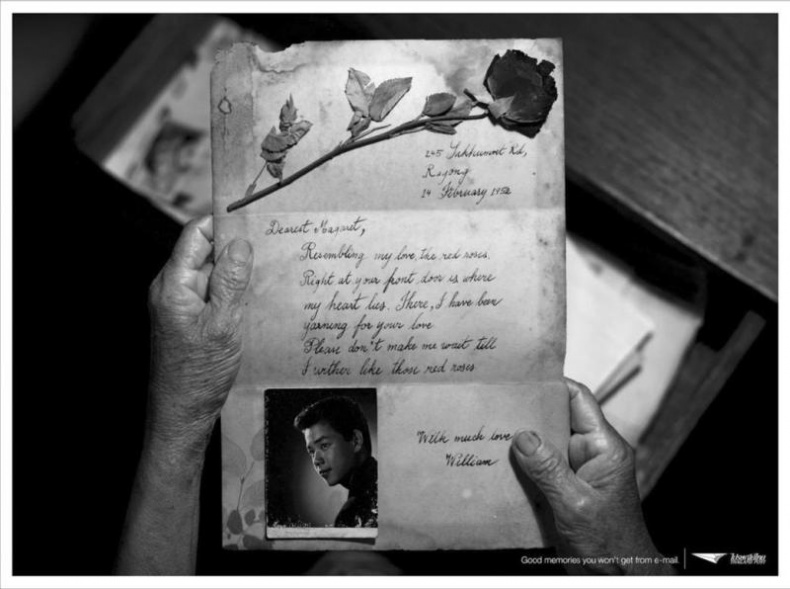 245 Sukhumvit Rd,
Rayong
14 February 1952
Dearest Magaret,
Resembling my love, the red roses.
Right at your front door is where
my heart lies. There, I have been
yarning for your love
Please don't make me wait till
I wither like those red roses
With much love
William
Good memories you won't get from e-mail.